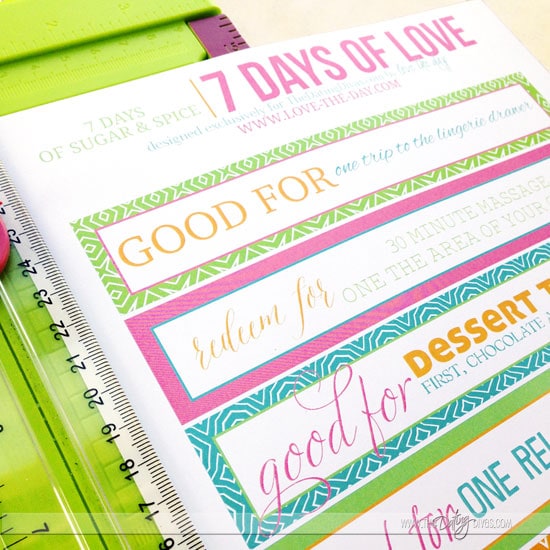 7 DAYS
OF SUGAR & SPICE
7 DAYS OF LOVE
designed exclusively for TheDatingDivas.com by love the day
WWW.LOVE-THE-DAY.COM
GOOD FOR one trip to the lingerie drawer
redeem for 30 MINUTE MASSAGE
ONE THE AREA OF YOUR
good for DESSERT
FIRST, CHOCOLATE
for ONE REL
17 18 19 20 21 22 23 24 25 26
WWW.THE Dating DIVAS.COM